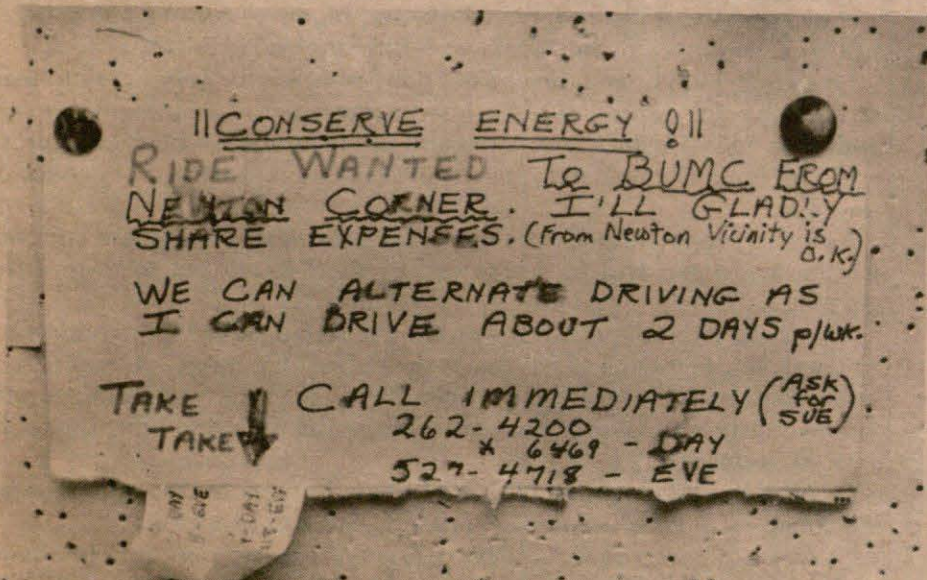 !!CONSERVE ENERGY!!!
RIDE WANTED TO BUMC FROM
NEWTON CORNER. I'LL GLADLY
SHARE EXPENSES. (From Newton Vicinity is O.K.)
WE CAN ALTERNATE DRIVING AS
I CAN DRIVE ABOUT 2 DAYS p/wk.
TAKE CALL IMMEDIATELY (ASK for SUE)
TAKE
262-4200
x 6469 - DAY
527-4718 - EVE
DAY
EVE
DAY
8-EVE